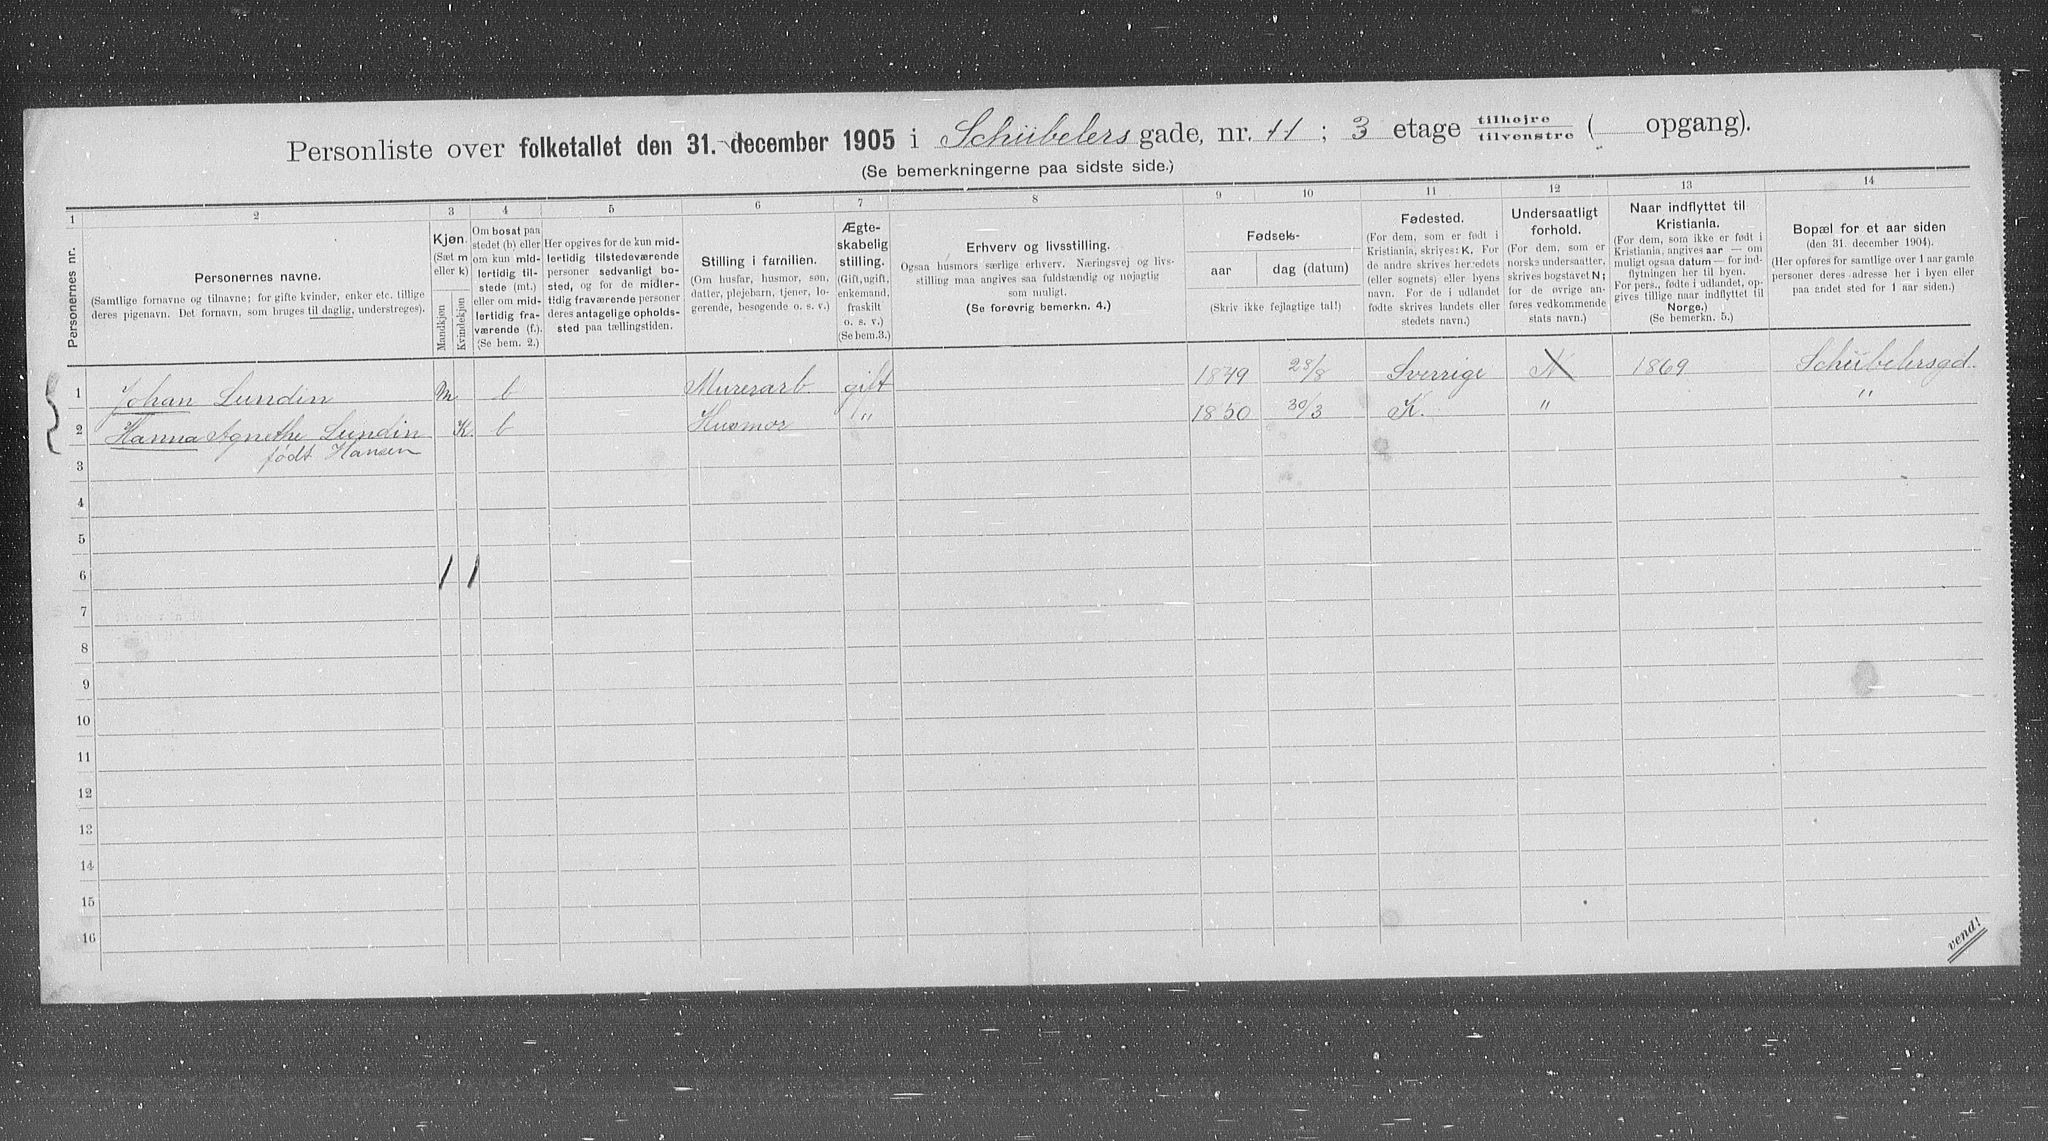 Personliste over folketallet den 31. december 1905 i Schübelers gade, nr. 11; 3 etage tilhøjre / tilvenstre ( opgang).
(Se bemerkningerne paa sidste side.)
1 2 3 4 5 6 7 8 9 10 11 12 13 14
Personernes nr.
Personernes navne.
(Samtlige fornavne og tilnavne; for gifte kvinder, enker etc. tillige
deres pigenavn. Det fornavn, som bruges til daglig, understreges).
Kjøn.
(Sæt m
eller k)
Mandkjøn
Kvindekjøn
Om bosat paa
stedet (b) eller
om kun mid-
lertidig til-
stede (mt.)
eller om mid-
lertidig fra-
værende (f.).
(Se bem. 2.)
Her opgives for de kun mid-
lertidig tilstedeværende
personer sedvanlig bo-
sted, og for de midler-
tidig fraværende personer
deres antagelige opholds-
sted paa tællingstiden.
Stilling i familien.
(Om husfar, husmor, søn,
datter, plejebarn, tjener, lo-
gerende, besøgende o. s. v.)
Ægte-
skabelig
stilling.
(Gift, ugift,
enkemand,
fraskilt
o. s. v.)
(Se bem. 3.)
Erhverv og livsstilling.
Ogsaa husmors særlige erhverv. Næringsvej og livs-
stilling maa angives saa fuldstændig og nøjagtig
som muligt.
(Se forøvrig bemerkn. 4.)
Fødsels-
aar
dag (datum)
(Skriv ikke fejlagtige tal!)
Fødested.
(For dem, som er født i
Kristiania, skrives: K. For
de andre skrives herredets
(eller sognets) eller byens
navn. For de i udlandet
fødte skrives landets eller
stedets navn.)
Undersaatligt
forhold.
(For dem, som er
norske undersaatter,
skrives bogstavet N;
for de øvrige an-
føres vedkommende
stats navn.)
Naar indflyttet til
Kristiania.
(For dem, som ikke er født i
Kristiania, angives aar — om
muligt ogsaa datum — for ind-
flytningen her til byen.
For pers., fødte i udlandet, op-
gives tillige naar indflyttet til
Norge.)
(Se bemerkn. 5.)
Bopæl for et aar siden
(den 31. december 1904).
(Her opføres for samtlige over 1 aar gamle
personer deres adresse her i byen eller
paa andet sted for 1 aar siden.)
1 Johan Lundin m b Murerarb gift 1849 28/8 Sverrige N 1869 Schübelersgd.
2 Hanna Agnethe Lundin K. b Husmor " 1850 30/3 K. " "
født Hansen
3
4
5
6 1 1
7
8
9
10
11
12
13
14
15
16
vend!